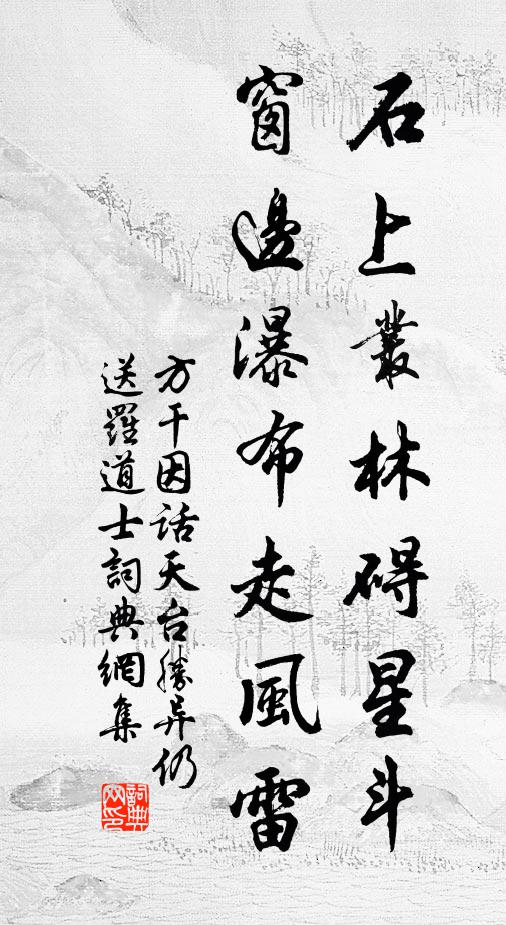 石上叢林碍星斗
窗邊瀑布走風雷
方干因話天台勝异仍
送羅道士詞典網集